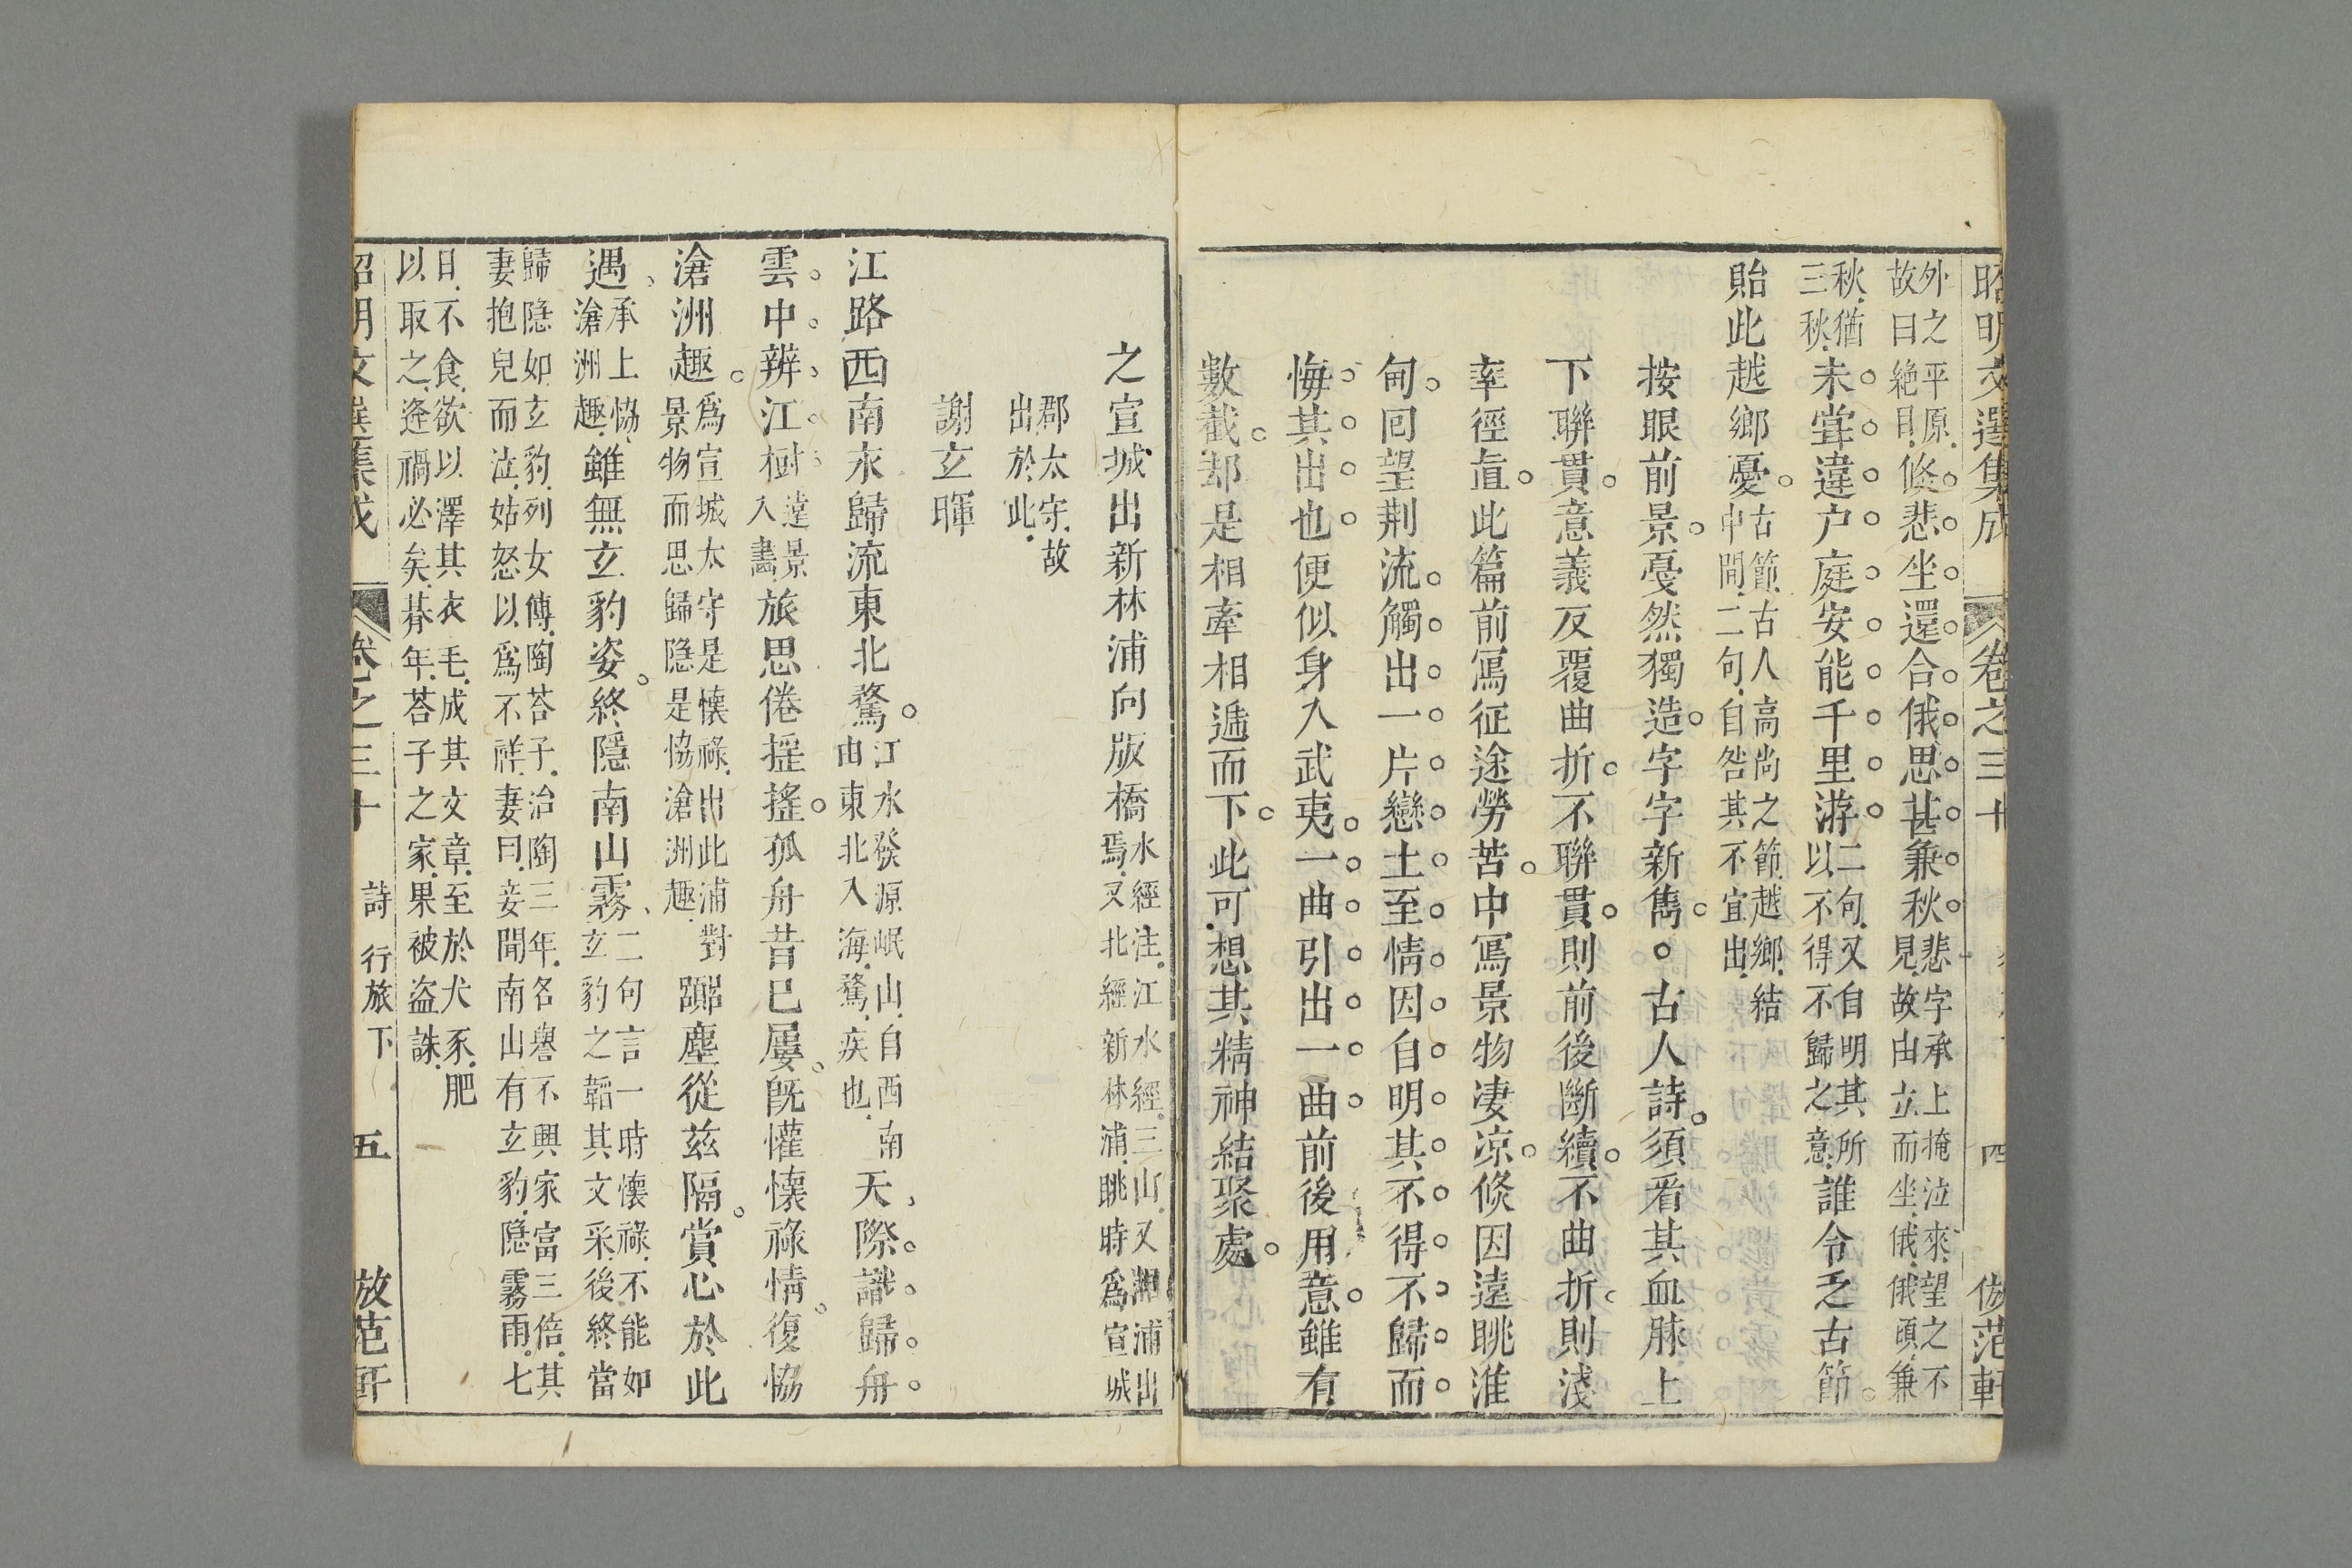 昭明文選集成 卷之三十 四 倣范軒
外之平原故曰絶目倐悲坐還合俄思甚兼秋悲字承上掩泣來望之不見故由立而坐俄俄頃兼
秋猶三秋未嘗違户庭安能千里游二句又自明其所以不得不歸之意誰令乏古節
貽此越鄉憂古節古人高尚之節越鄉結中間二句自咎其不宜出
按眼前景戞然獨造字字新雋○古人詩須看其血脉上
下聯貫意義反覆曲折不聯貫則前後斷續不曲折則淺
率徑直此篇前寫征途勞苦中寫景物凄凉倐因遠眺淮
甸回望荆流觸出一片戀土至情因自明其不得不歸而
悔其出也便似身入武夷一曲引出一曲前後用意雖有
數截却是相牽相遞而下此可想其精神結聚處
之宣城出新林浦向版橋水經注江水經三山又湘浦出焉又北經新林浦眺時爲宣城
郡太守故出於此
謝玄暉
江路西南永歸流東北騖江水發源岷山自西南由東北入海騖疾也天際識歸舟
雲中辨江樹遠景入畵旅思倦揺揺孤舟昔已屢旣懽懷祿情復恊
滄洲趣爲宣城太守是懷祿出此浦對景物而思歸隐是恊滄洲趣囂塵從兹隔賞心於此
遇承上恊滄洲趣雖無玄豹姿終隱南山霧二句言一時懷祿不能如玄豹之韜其文采後終當
歸隐如玄豹列女傳陶荅子治陶三年名譽不興家富三倍其妻抱兒而泣姑怒以爲不祥妻曰妾聞南山有玄豹隐霧雨七
日不食欲以澤其衣毛成其文章至於犬豕肥以取之逄禍必矣朞年荅子之家果被盗誅
昭明文選集成 卷之三十 詩 行旅下 五 倣范軒